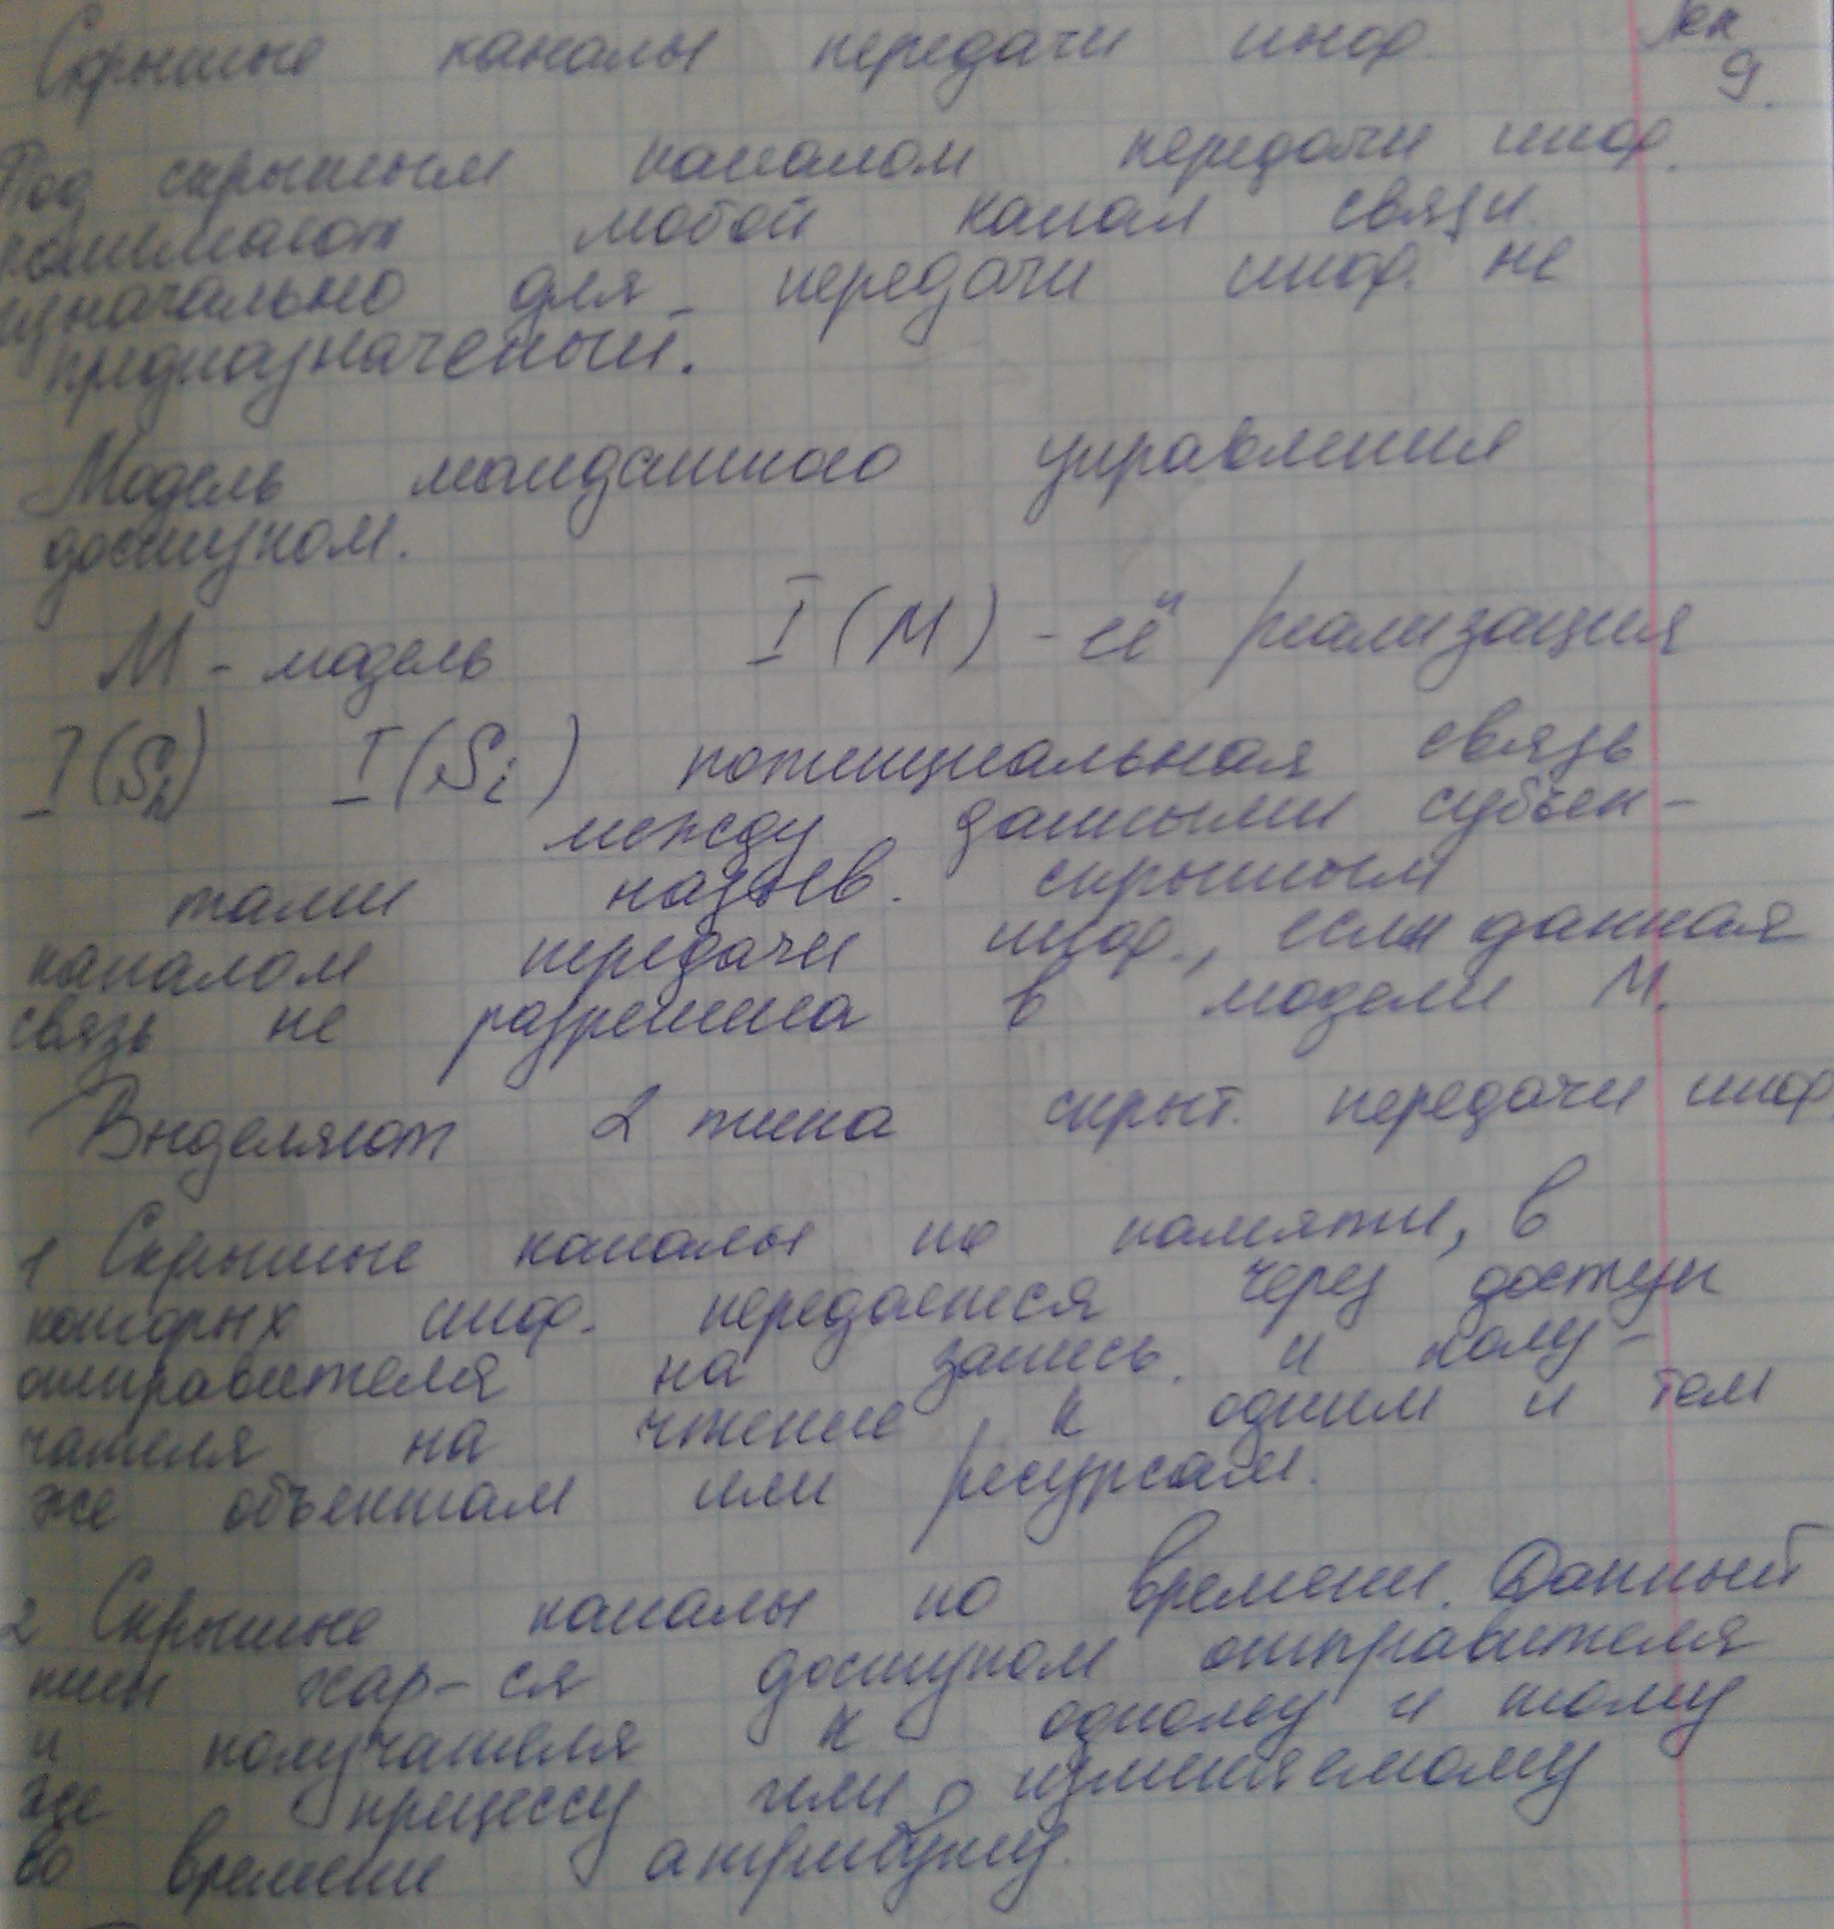 Скрытые каналы передачи инф. Лек 9.
Под скрытым каналом передачи инф.
понимают любой канал связи
изначально для передачи инф. не
предназначеный.
Модель мандатного управления
доступом.
М - модель I(M) - её реализация
I(Sh) I(Si) потенциальная связь
между данными субъек-
тами назыв. скрытым
каналом передачи инф., если данная
связь не разрешена в модели М.
Выделяют 2 типа скрыт. передачи инф.
1 Скрытые каналы по памяти, в
которых инф. передается через доступ
отправителя на запись и полу-
чателя на чтение к одним и тем
же объектам или ресурсам.
2 Скрытые каналы по времени. Данный
тип хар-ся доступом отправителя
и получателя к одному и тому
же процессу или изменяемому
во времени атрибуту.